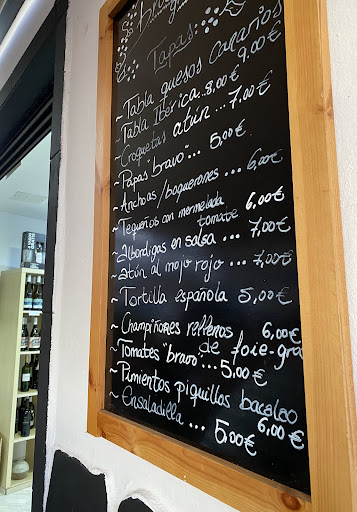 Tapas:
~ Tabla quesos canarios 9,00€
~ Tabla Ibérica...8,00€
~ Croquetas atún... 7,00€
~ Papas "bravo"... 5,00€
~ Anchoas/boquerones... 6,00€
~ Tequeños con mermelada tomate 6,00€
~ Albondigas en salsa... 7,00€
~ atún al mojo rojo... 7,00€
~ Tortilla española 5,00€
~ Champiñones rellenos de foie-gra 6,00€
~ Tomates "bravo"... 5,00€
~ Pimientos piquillos bacalao 6,00€
~ Ensaladilla... 5,00€